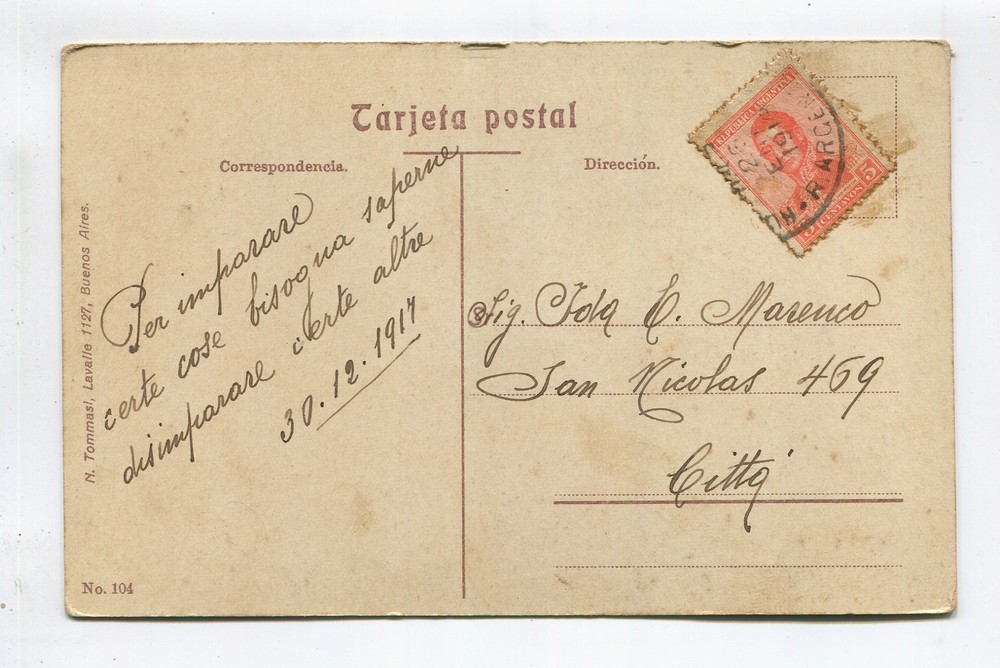 Tarjeta postal
Correspondencia.
Dirección.
REPUBLICA ARGENTINA
5 CENTAVOS 5
N. Tommasi, Lavalle 1127, Buenos Aires.
Per imparare
certe cose bisogna saperne
disimparare certe altre
30.12.1917
Sig. Ida E. Marenco
San Nicolas 469
Città
No. 104